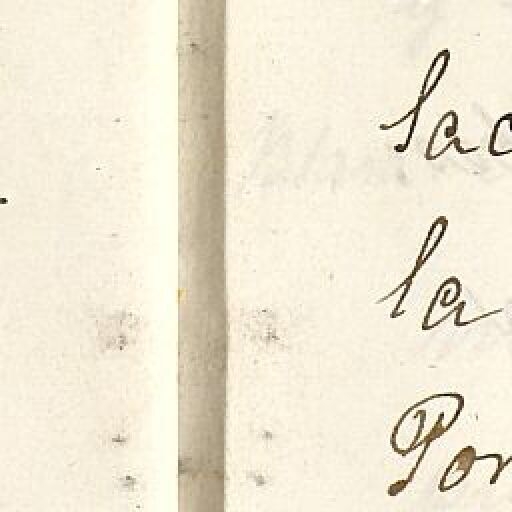 sac
la
Por